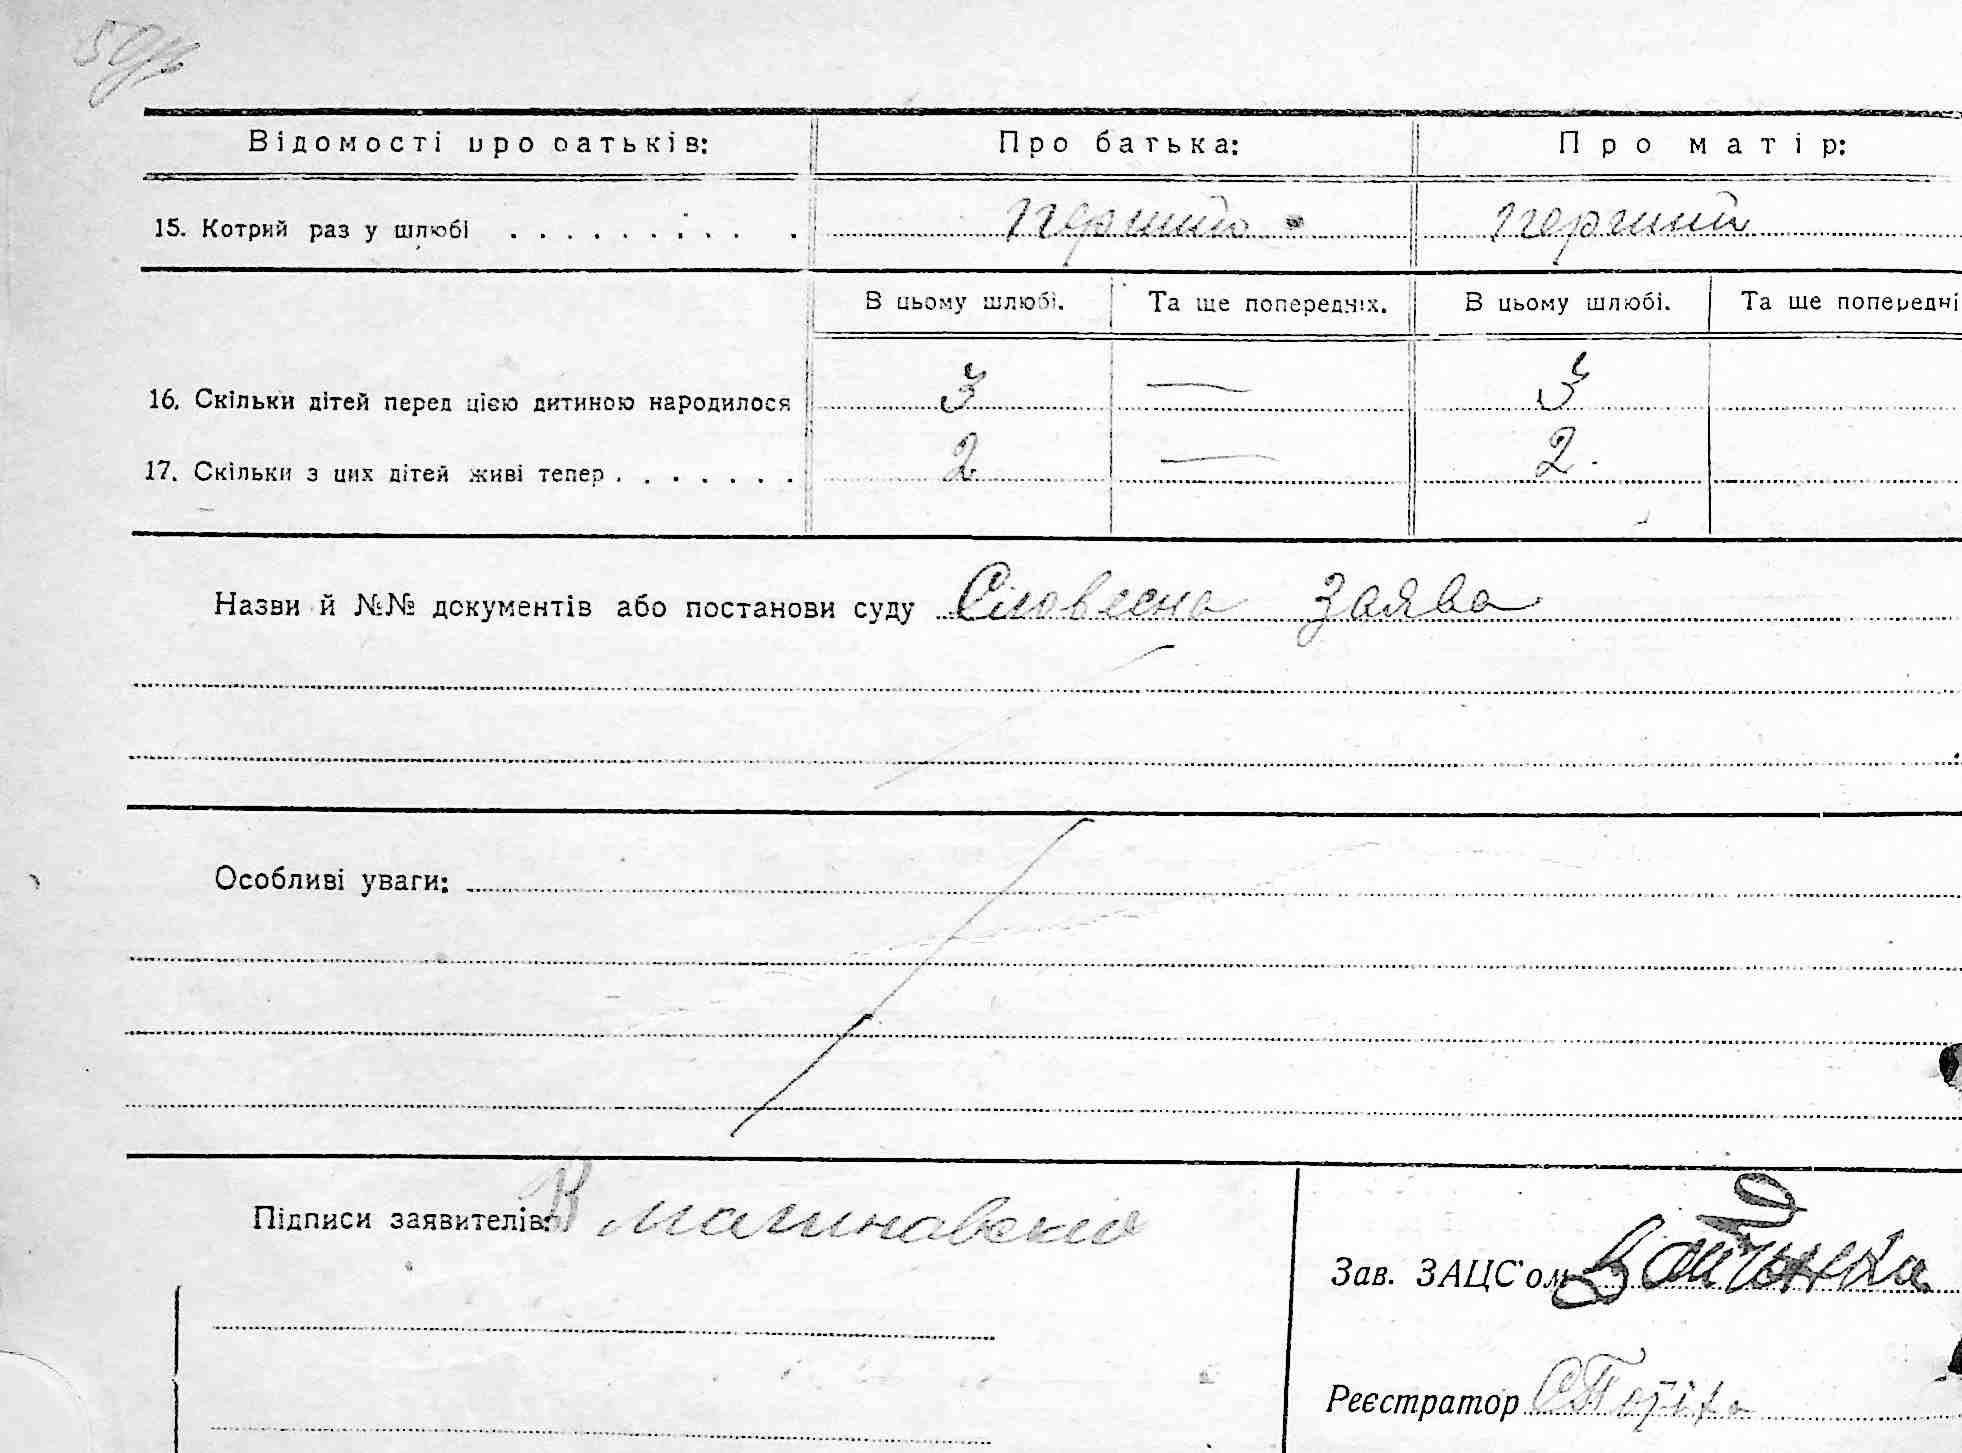 Відомості про батьків: Про батька: Про матір:
15. Котрий раз у шлюбі . . . . . . . . . . Перший Перший
В цьому шлюбі. Та ще попередніх. В цьому шлюбі. Та ще попередні
16. Скільки дітей перед цією дитиною народилося 3 — 3
17. Скільки з цих дітей живі тепер . . . . . . . 2 — 2.
Назви й №№ документів або постанови суду Словесна заява
Особливі уваги:
Підписи заявителів: В Малиновский
Зав. ЗАЦС'ом
Реєстратор